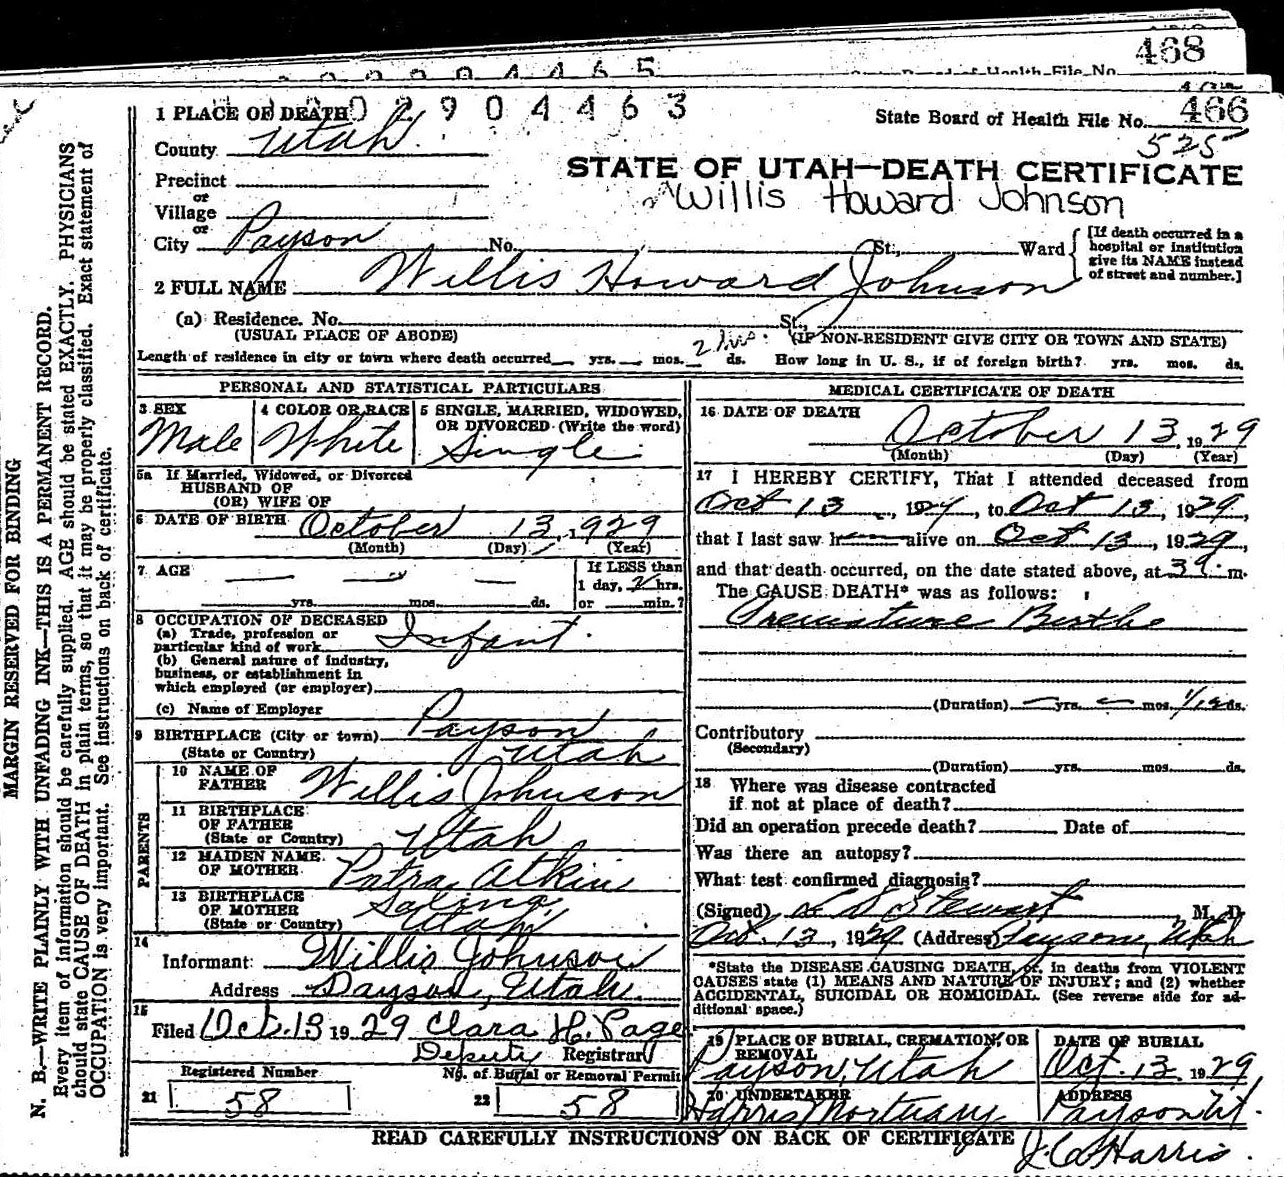 468
State Board of Health File No.
02904465
02904463
1 PLACE OF DEATH
State Board of Health File No. 466
525
County Utah
STATE OF UTAH—DEATH CERTIFICATE
Precinct
or
Willis Howard Johnson
Village
or
City Payson No. St., Ward
[If death occurred in a hospital or institution give its NAME instead of street and number.]
2 FULL NAME Willis Howard Johnson
(a) Residence. No. St.,
(USUAL PLACE OF ABODE) (IF NON-RESIDENT GIVE CITY OR TOWN AND STATE)
Length of residence in city or town where death occurred yrs. mos. 2 hrs. ds. How long in U. S., if of foreign birth? yrs. mos. ds.
PERSONAL AND STATISTICAL PARTICULARS
3 SEX 4 COLOR OR RACE 5 SINGLE, MARRIED, WIDOWED, OR DIVORCED (Write the word)
Male White Single
5a If Married, Widowed, or Divorced
HUSBAND OF
(OR) WIFE OF
6 DATE OF BIRTH October 13, 1929
(Month) (Day) (Year)
7 AGE — — —
yrs. mos. ds.
If LESS than
1 day, 2 hrs.
or min.?
8 OCCUPATION OF DECEASED
(a) Trade, profession or
particular kind of work Infant
(b) General nature of industry,
business, or establishment in
which employed (or employer)
(c) Name of Employer
9 BIRTHPLACE (City or town) Payson
(State or Country) Utah
PARENTS
10 NAME OF
FATHER Willis Johnson
11 BIRTHPLACE
OF FATHER
(State or Country) Utah
12 MAIDEN NAME
OF MOTHER Patra Atkin
13 BIRTHPLACE
OF MOTHER Salina,
(State or Country) Utah
14
Informant: Willis Johnson
Address Payson, Utah
15
Filed Oct. 13 1929 Clara H. Page
Deputy Registrar
Registered Number No. of Burial or Removal Permit
21 58 22 58
MEDICAL CERTIFICATE OF DEATH
16 DATE OF DEATH
October 13, 1929
(Month) (Day) (Year)
17 I HEREBY CERTIFY, That I attended deceased from
Oct 13, 1929, to Oct 13, 1929,
that I last saw h alive on Oct 13, 1929,
and that death occurred, on the date stated above, at m.
The CAUSE DEATH* was as follows:
Premature Birth
(Duration) — yrs. — mos. 1/12 ds.
Contributory
(Secondary)
(Duration) yrs. mos. ds.
18 Where was disease contracted
if not at place of death?
Did an operation precede death? Date of
Was there an autopsy?
What test confirmed diagnosis?
(Signed) L D Stewart, M. D.
Oct. 13, 1929 (Address) Payson, Utah
*State the DISEASE CAUSING DEATH, or, in deaths from VIOLENT
CAUSES state (1) MEANS AND NATURE OF INJURY; and (2) whether
ACCIDENTAL, SUICIDAL OR HOMICIDAL. (See reverse side for ad-
ditional space.)
19 PLACE OF BURIAL, CREMATION, OR
REMOVAL
Payson, Utah
DATE OF BURIAL
Oct. 13 1929
20 UNDERTAKER
Harris Mortuary
ADDRESS
Payson Ut.
READ CAREFULLY INSTRUCTIONS ON BACK OF CERTIFICATE
J. C. Harris.
MARGIN RESERVED FOR BINDING
N. B.—WRITE PLAINLY WITH UNFADING INK—THIS IS A PERMANENT RECORD.
Every item of information should be carefully supplied. AGE should be stated EXACTLY. PHYSICIANS
should state CAUSE OF DEATH in plain terms, so that it may be properly classified. Exact statement of
OCCUPATION is very important. See instructions on back of certificate.